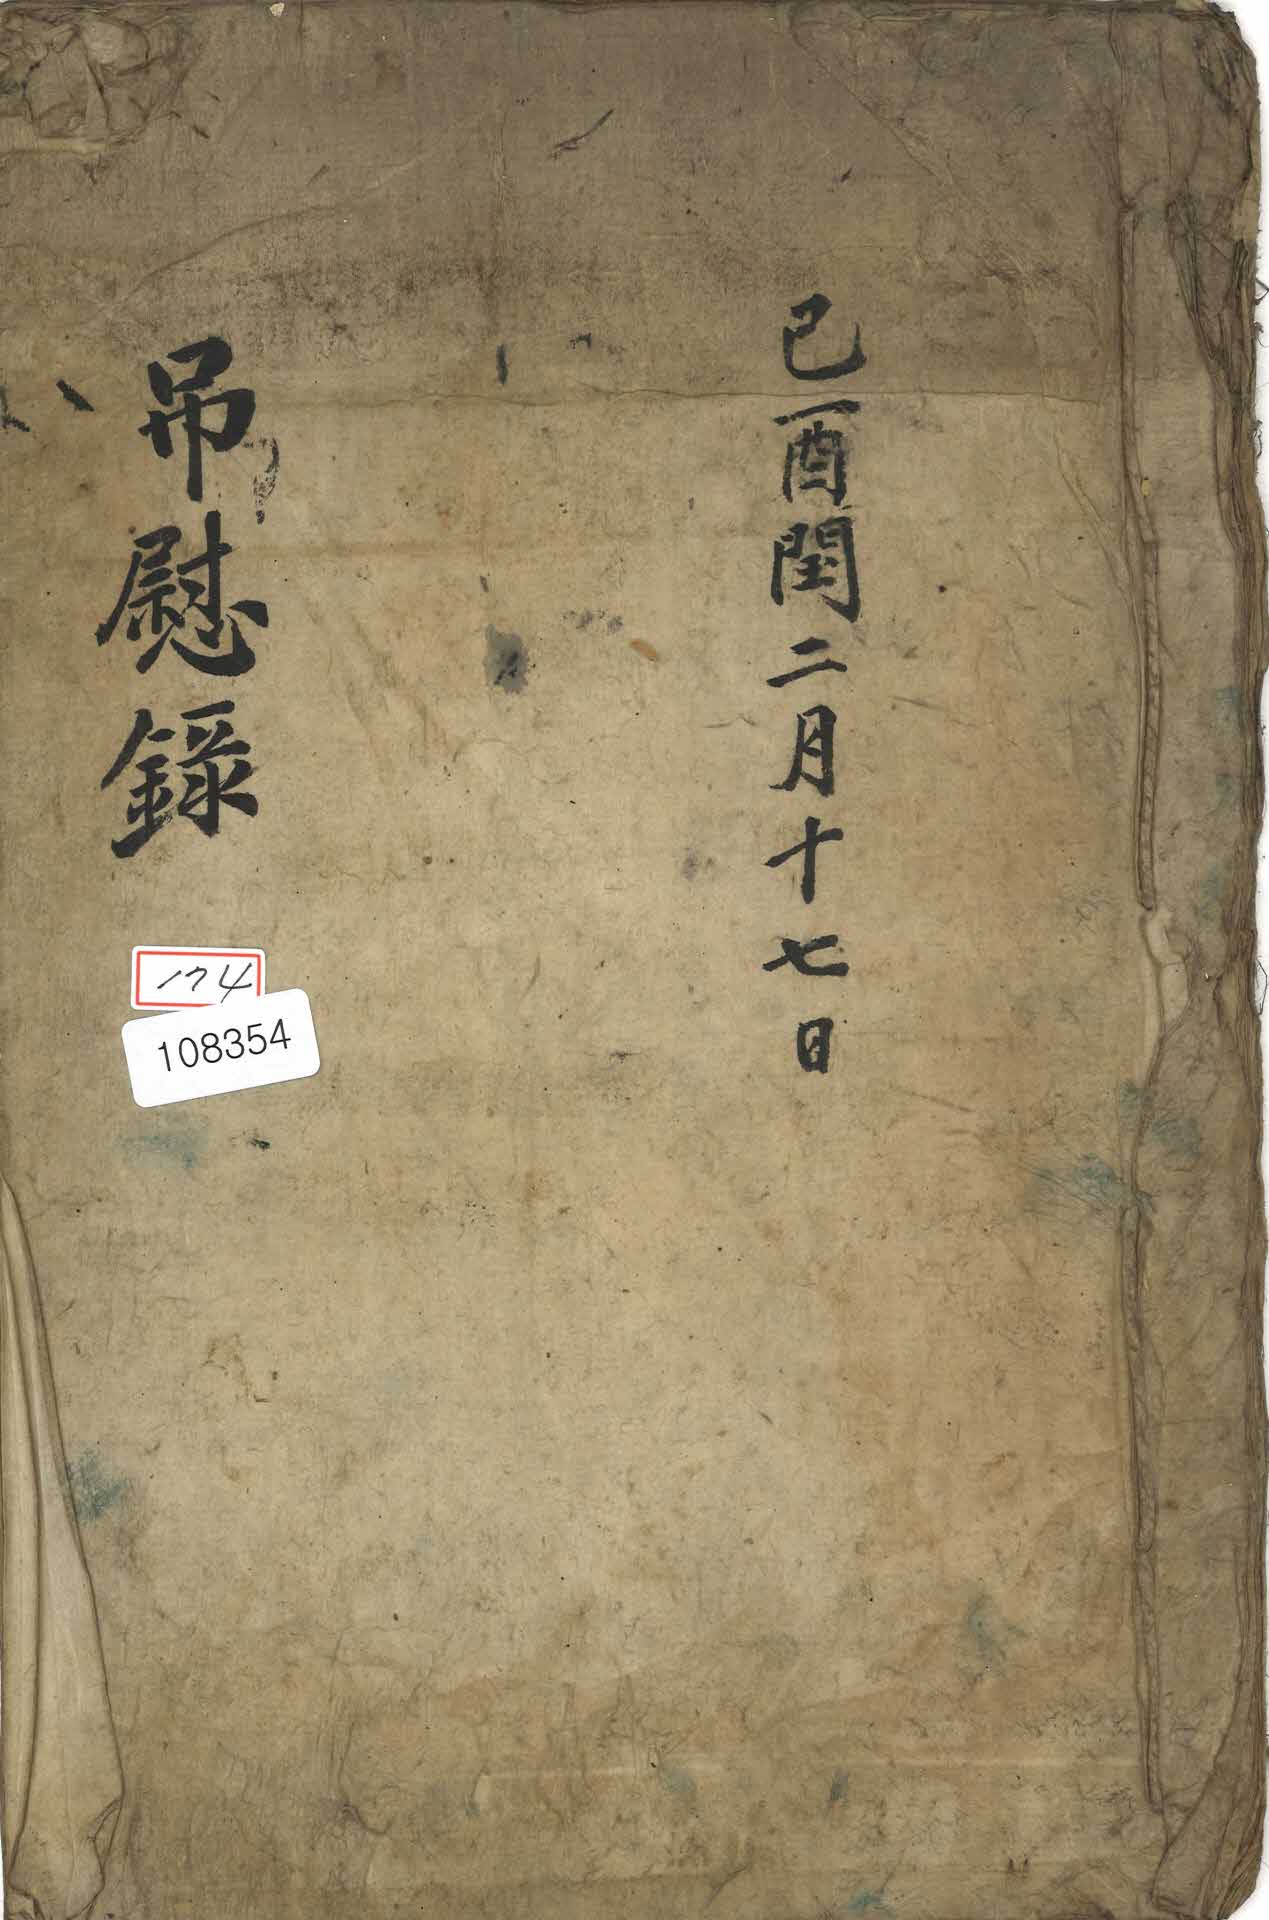 己酉閏二月十七日
吊慰錄
174
108354